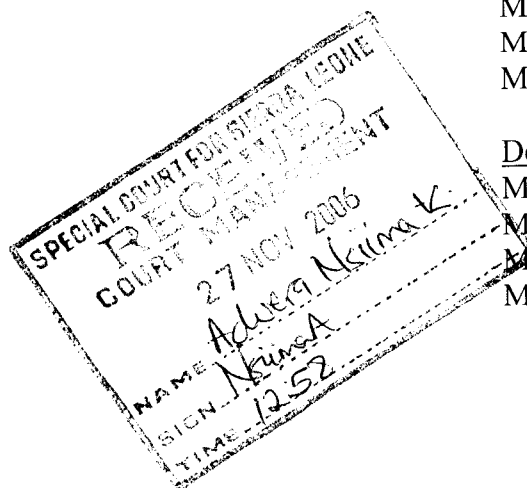 M
M
M
De
M
M
M
M
SPECIAL COURT FOR SIERRA LEONE
RECEIVED
COURT MANAGEMENT
27 NOV 2006
NAME Adwera Nsiima K.
SIGN NsiimaA
TIME 1252